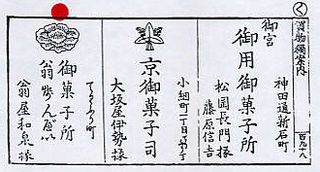 く
買物獨案内
百九十八
神田通新石町
御宮
御用御菓子所
松岡長門掾
藤原信吉
小網町一丁目
京御菓子司
大坂屋伊勢掾
てりふり町
御菓子所
翁せんべい
翁屋和泉掾